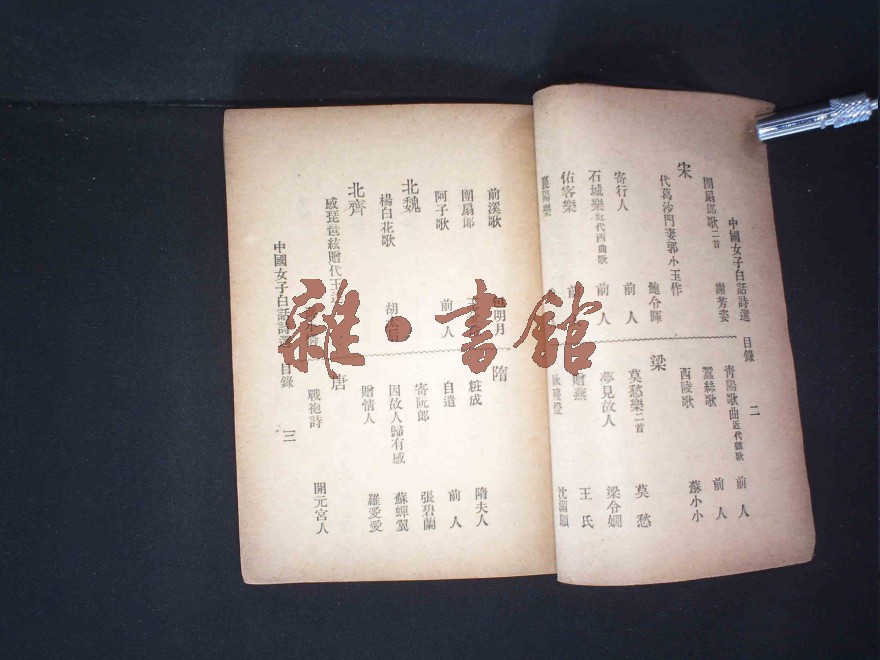 中國女子白話詩選 目錄 二
團扇郎歌二首 謝芳姿
宋
代葛沙門妻郭小玉作 鮑令暉
寄行人 前人
石城樂近代西曲歌 前人
估客樂 前
襄陽樂
青陽歌曲近代雜歌 前人
蠶絲歌 前人
西陵歌 蘇小小
梁
莫愁樂二首 莫愁
夢見故人 梁令嫻
贈燕 王氏
詠殘燈 沈滿願
前溪歌 明月
團扇郎
阿子歌 前人
北魏
楊白花歌 胡
北齊
感琵琶絃贈代王
隋
粧成 隋夫人
自遣 前人
寄阮郎 張碧蘭
因故人歸有感 蘇蟬翼
贈情人 羅愛愛
唐
戰袍詩 開元宮人
中國女子白話詩選 目錄 三
雜·書館